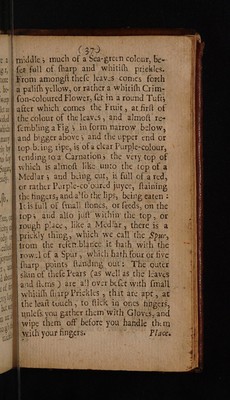 (37)
middle; much of a Sea-green colour, be-
set full of sharp and whitish prickles.
From amongst these leaves comes forth
a palish yellow, or rather a whitish Crim-
son-coloured Flower, set in a round Tuft;
after which comes the Fruit, at first of
the colour of the leaves, and almost re-
sembling a Fig; in form narrow below,
and bigger above; and the upper end or
top being ripe, is of a clear Purple-colour,
tending to a Carnation; the very top of
which is almost like unto the top of a
Medlar; and being cut, is full of a red,
or rather Purple-coloured juyce, staining
the fingers, and also the lips, being eaten:
It is full of small stones, or seeds, on the
top; and also just within the top, or
rough place, like a Medlar, there is a
prickly thing, which we call the Spur,
from the resemblance it hath with the
rowel of a Spur, which hath four or five
sharp points standing out: The outer
skin of these Pears (as well as the leaves
and stems) are all over beset with small
whitish sharp Prickles, that are apt, at
the least touch, to stick in ones fingers,
unless you gather them with Gloves, and
wipe them off before you handle them
with your fingers. Place.